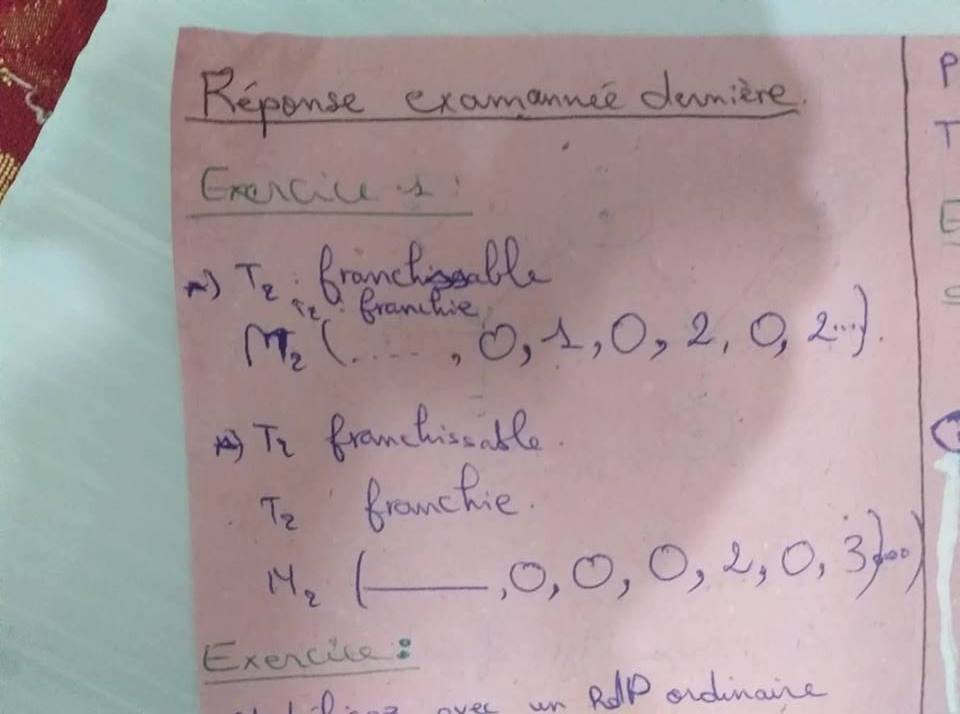 Réponse examannée dernière.
Exercice 1:
T2 : franchissable
T2 : franchie
M2 (....., 0, 1, 0, 2, 0, 2...).
T2 franchissable.
T2 franchie.
M2 (____, 0, 0, 0, 2, 0, 3)...)
Exercice :
avec un RdP ordinaire
P
T
E